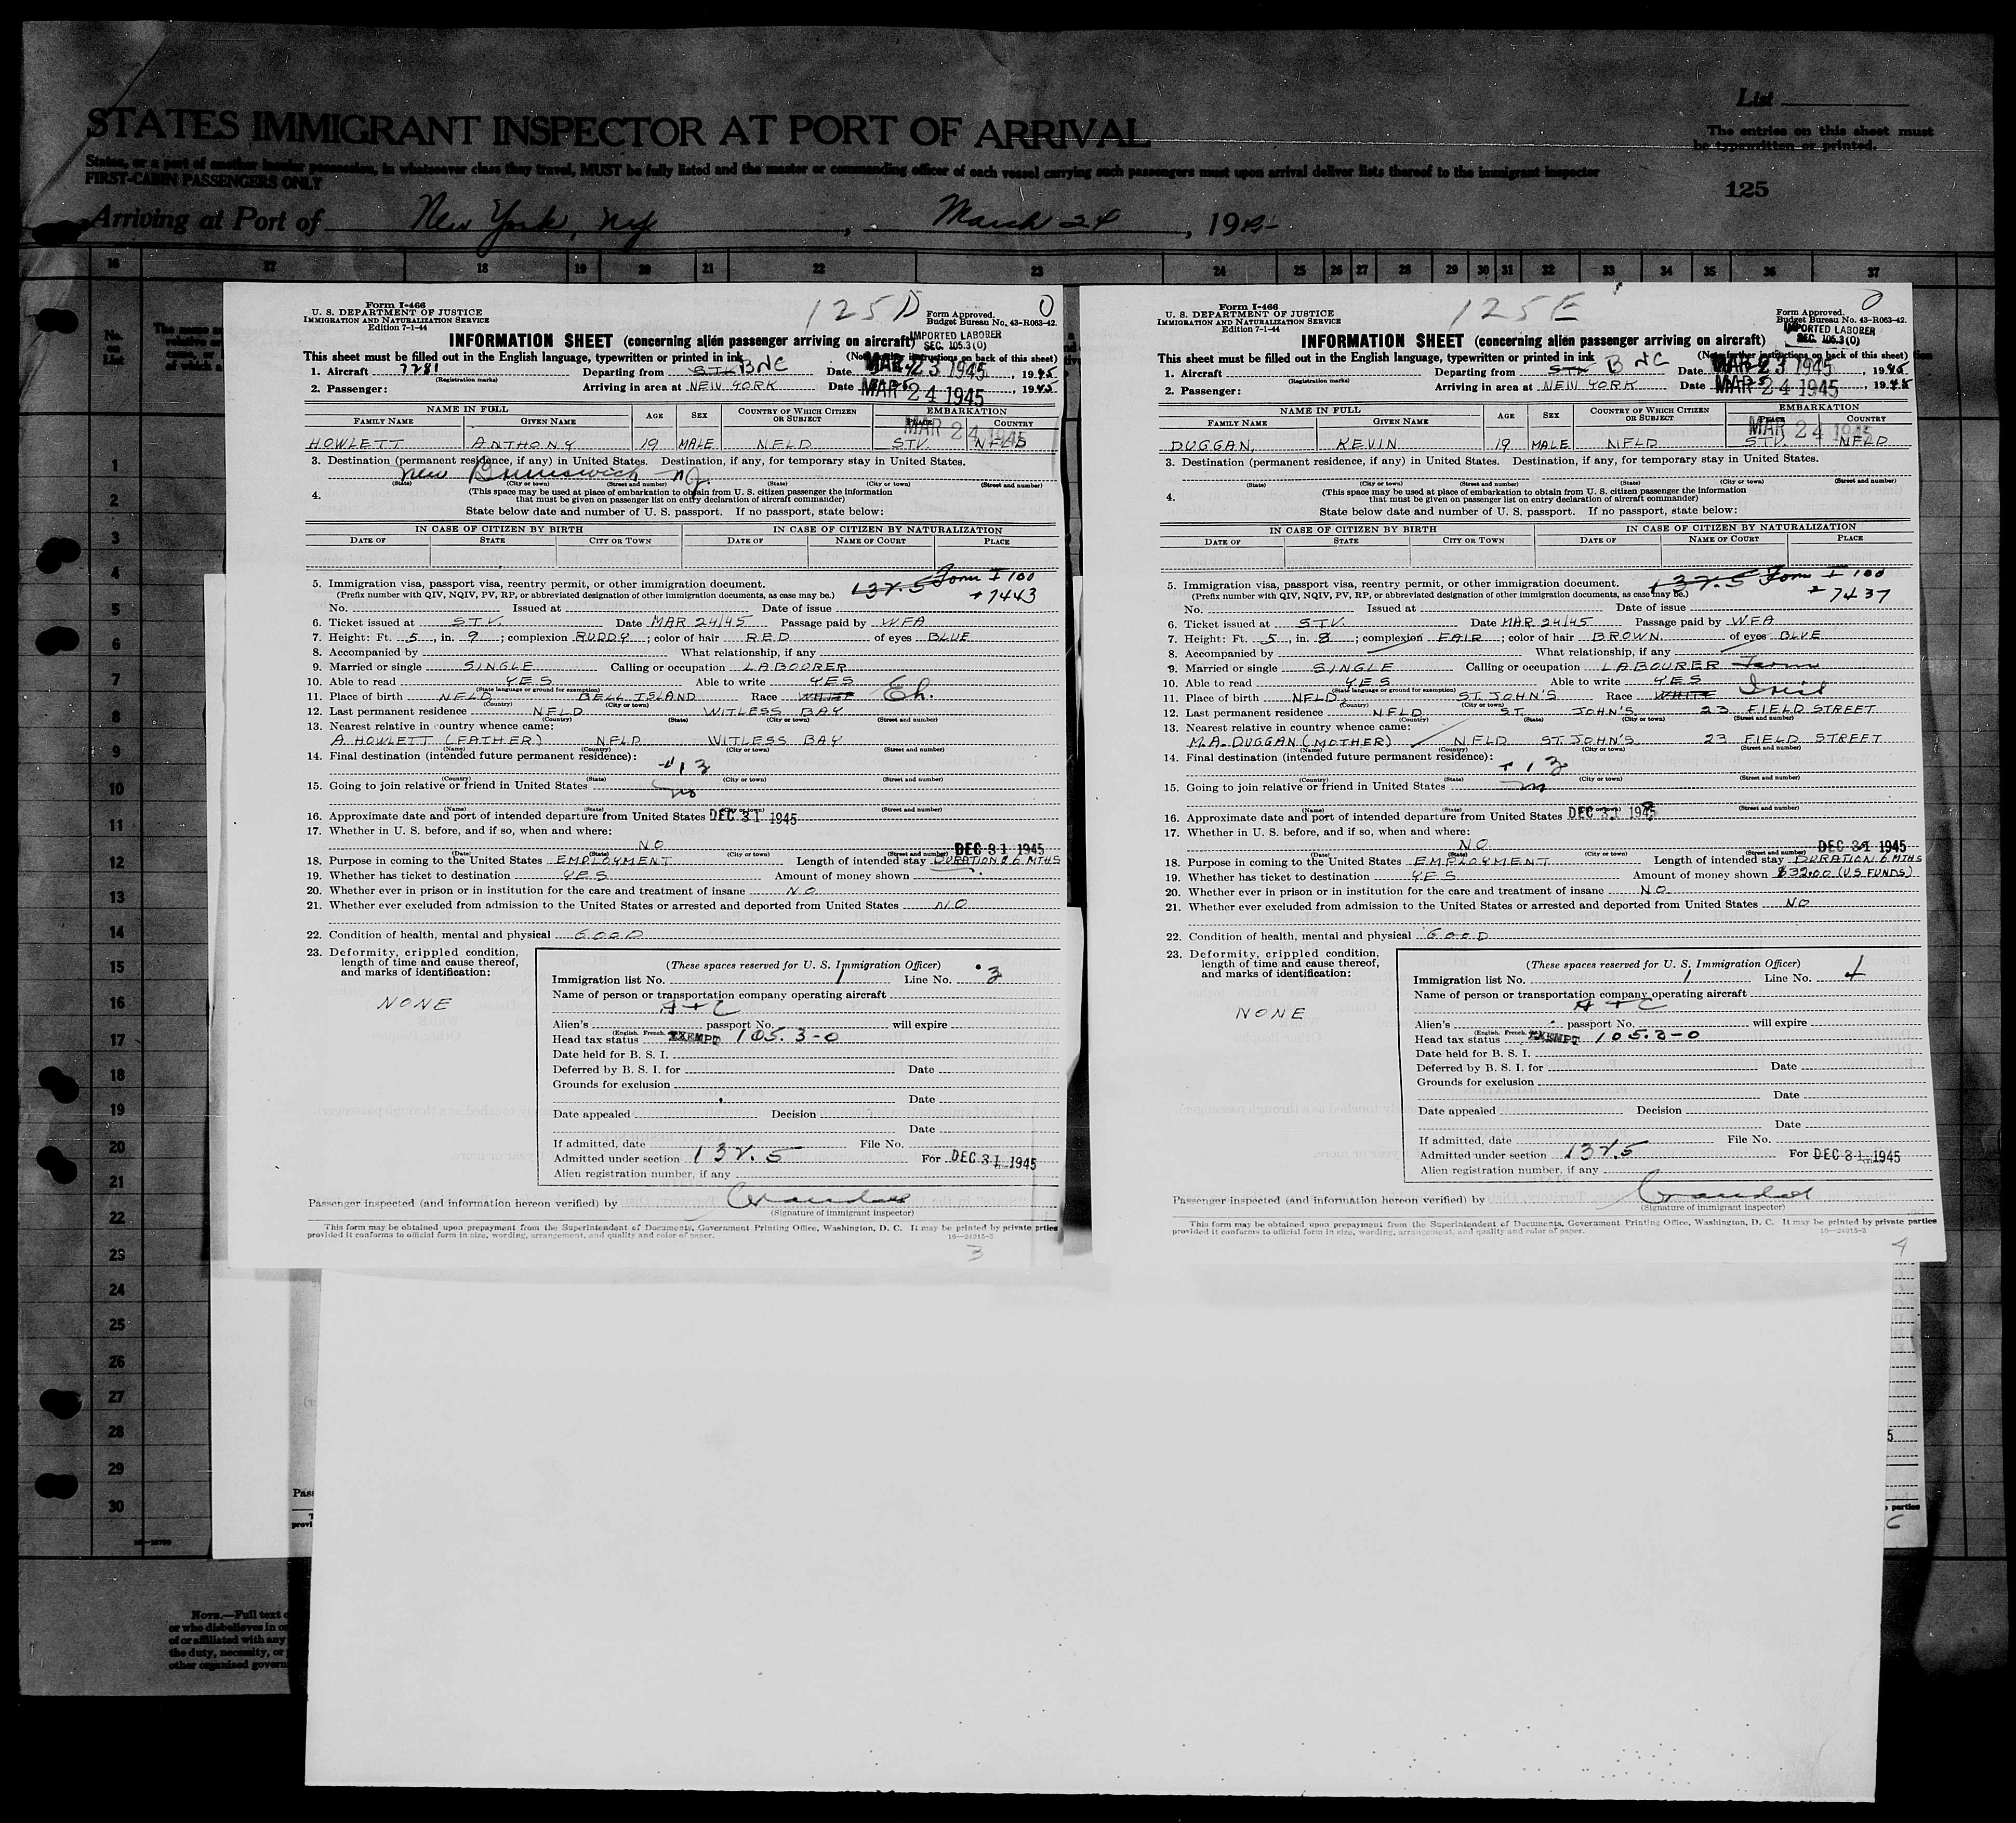 List
STATES IMMIGRANT INSPECTOR AT PORT OF ARRIVAL
The entries on this sheet must
be typewritten or printed.
States, or a port of another insular possession, in whatsoever class they travel, MUST be fully listed and the master or commanding officer of each vessel carrying such passengers must upon arrival deliver lists thereof to the immigrant inspector
FIRST-CABIN PASSENGERS ONLY
125
Arriving at Port of New York, NY, March 24, 1945
16 17 18 19 20 21 22 23 24 25 26 27 28 29 30 31 32 33 34 35 36 37
No. on List
1
2
3
4
5
6
7
8
9
10
11
12
13
14
15
16
17
18
19
20
21
22
23
24
25
26
27
28
29
30
125 D
0
Form I-466
U. S. DEPARTMENT OF JUSTICE
IMMIGRATION AND NATURALIZATION SERVICE
Edition 7-1-44
Form Approved.
Budget Bureau No. 43-R063-42.
IMPORTED LABORER
SEC. 105.3 (0)
INFORMATION SHEET (concerning alien passenger arriving on aircraft)
This sheet must be filled out in the English language, typewritten or printed in ink (Note further instructions on back of this sheet)
1. Aircraft 7281 Departing from STV BNC Date MAR 23 1945, 1945
(Registration marks)
2. Passenger: Arriving in area at NEW YORK Date MAR 24 1945, 1945
NAME IN FULL AGE SEX COUNTRY OF WHICH CITIZEN OR SUBJECT EMBARKATION
FAMILY NAME GIVEN NAME PLACE COUNTRY
MAR 24 1945
HOWLETT ANTHONY 19 MALE NFLD STV. NFLD
3. Destination (permanent residence, if any) in United States. Destination, if any, for temporary stay in United States.
New Brunswick NJ.
(State) (City or town) (Street and number) (State) (City or town) (Street and number)
4. (This space may be used at place of embarkation to obtain from U. S. citizen passenger the information
that must be given on passenger list on entry declaration of aircraft commander)
State below date and number of U. S. passport. If no passport, state below:
IN CASE OF CITIZEN BY BIRTH IN CASE OF CITIZEN BY NATURALIZATION
DATE OF STATE CITY OR TOWN DATE OF NAME OF COURT PLACE
5. Immigration visa, passport visa, reentry permit, or other immigration document. 132.5 Form I 100
(Prefix number with QIV, NQIV, PV, RP, or abbreviated designation of other immigration documents, as case may be.) 7443
No. Issued at Date of issue
6. Ticket issued at STV. Date MAR 24/45 Passage paid by WFA
7. Height: Ft. 5, in. 9; complexion RUDDY; color of hair RED of eyes BLUE
8. Accompanied by What relationship, if any
9. Married or single SINGLE Calling or occupation LABOURER
10. Able to read YES Able to write YES
(State language or ground for exemption)
11. Place of birth NFLD BELL ISLAND Race WHITE Eh.
(Country) (City or town)
12. Last permanent residence NFLD WITLESS BAY
(Country) (State) (City or town) (Street and number)
13. Nearest relative in country whence came:
A HOWLETT (FATHER) NFLD WITLESS BAY
(Name) (Country) (City or town) (Street and number)
14. Final destination (intended future permanent residence): # 13
(Country) (State) (City or town) (Street and number)
15. Going to join relative or friend in United States no
(Name) (State) (City or town) (Street and number)
16. Approximate date and port of intended departure from United States DEC 31 1945
17. Whether in U. S. before, and if so, when and where:
NO DEC 31 1945
(Date) (State) (City or town) (Street and number)
18. Purpose in coming to the United States EMPLOYMENT Length of intended stay DURATION & 6 MTHS
19. Whether has ticket to destination YES Amount of money shown
20. Whether ever in prison or in institution for the care and treatment of insane NO
21. Whether ever excluded from admission to the United States or arrested and deported from United States NO
22. Condition of health, mental and physical GOOD
23. Deformity, crippled condition,
length of time and cause thereof,
and marks of identification:
NONE
(These spaces reserved for U. S. Immigration Officer)
Immigration list No. 1 Line No. 3
Name of person or transportation company operating aircraft
A T C
Alien's passport No. will expire
(English, French,
Head tax status EXEMPT 105.3-0
Date held for B. S. I.
Deferred by B. S. I. for Date
Grounds for exclusion
Date
Date appealed Decision
Date
If admitted, date File No.
Admitted under section 132.5 For DEC 31 1945
Alien registration number, if any
Passenger inspected (and information hereon verified) by Crandall
(Signature of immigrant inspector)
This form may be obtained upon prepayment from the Superintendent of Documents, Government Printing Office, Washington, D. C. It may be printed by private prties
provided it conforms to official form in size, wording, arrangement, and quality and color of paper. 16—24915-2
3
125 E
0
Form I-466
U. S. DEPARTMENT OF JUSTICE
IMMIGRATION AND NATURALIZATION SERVICE
Edition 7-1-44
Form Approved.
Budget Bureau No. 43-R063-42.
IMPORTED LABORER
SEC. 105.3 (0)
INFORMATION SHEET (concerning alien passenger arriving on aircraft)
This sheet must be filled out in the English language, typewritten or printed in ink (Note further instructions on back of this sheet)
1. Aircraft Departing from STV BNC Date MAR 23 1945, 1945
(Registration marks)
2. Passenger: Arriving in area at NEW YORK Date MAR 24 1945, 1945
NAME IN FULL AGE SEX COUNTRY OF WHICH CITIZEN OR SUBJECT EMBARKATION
FAMILY NAME GIVEN NAME PLACE COUNTRY
MAR 24 1945
DUGGAN, KEVIN 19 MALE NFLD STV. NFLD
3. Destination (permanent residence, if any) in United States. Destination, if any, for temporary stay in United States.
(State) (City or town) (Street and number) (State) (City or town) (Street and number)
4. (This space may be used at place of embarkation to obtain from U. S. citizen passenger the information
that must be given on passenger list on entry declaration of aircraft commander)
State below date and number of U. S. passport. If no passport, state below:
IN CASE OF CITIZEN BY BIRTH IN CASE OF CITIZEN BY NATURALIZATION
DATE OF STATE CITY OR TOWN DATE OF NAME OF COURT PLACE
5. Immigration visa, passport visa, reentry permit, or other immigration document. 132.5 Form I 100
(Prefix number with QIV, NQIV, PV, RP, or abbreviated designation of other immigration documents, as case may be.) 7437
No. Issued at Date of issue
6. Ticket issued at STV. Date MAR 24/45 Passage paid by WFA
7. Height: Ft. 5, in. 8; complexion FAIR; color of hair BROWN of eyes BLUE
8. Accompanied by What relationship, if any
9. Married or single SINGLE Calling or occupation LABOURER Farm
10. Able to read YES Able to write YES
(State language or ground for exemption)
11. Place of birth NFLD. ST. JOHN'S Race WHITE Irish
(Country) (City or town)
12. Last permanent residence NFLD ST. JOHN'S 23 FIELD STREET
(Country) (State) (City or town) (Street and number)
13. Nearest relative in country whence came:
M.A. DUGGAN (MOTHER) NFLD ST. JOHN'S 23 FIELD STREET
(Name) (Country) (City or town) (Street and number)
14. Final destination (intended future permanent residence): # 13
(Country) (State) (City or town) (Street and number)
15. Going to join relative or friend in United States no
(Name) (State) (City or town) (Street and number)
16. Approximate date and port of intended departure from United States DEC 31 1945
17. Whether in U. S. before, and if so, when and where:
NO DEC 31 1945
(Date) (State) (City or town) (Street and number)
18. Purpose in coming to the United States EMPLOYMENT Length of intended stay DURATION 6 MTHS
19. Whether has ticket to destination YES Amount of money shown $32.00 (U.S FUNDS)
20. Whether ever in prison or in institution for the care and treatment of insane NO
21. Whether ever excluded from admission to the United States or arrested and deported from United States NO
22. Condition of health, mental and physical GOOD
23. Deformity, crippled condition,
length of time and cause thereof,
and marks of identification:
NONE
(These spaces reserved for U. S. Immigration Officer)
Immigration list No. 1 Line No. 4
Name of person or transportation company operating aircraft
A T C
Alien's passport No. will expire
(English, French,
Head tax status EXEMPT 105.3-0
Date held for B. S. I.
Deferred by B. S. I. for Date
Grounds for exclusion
Date
Date appealed Decision
Date
If admitted, date File No.
Admitted under section 132.5 For DEC 31 1945
Alien registration number, if any
Passenger inspected (and information hereon verified) by Crandall
(Signature of immigrant inspector)
This form may be obtained upon prepayment from the Superintendent of Documents, Government Printing Office, Washington, D. C. It may be printed by private parties
provided it conforms to official form in size, wording, arrangement, and quality and color of paper. 16—24915-2
4
Pass
provi
5
parties
6
NOTE.—Full text o
or who disbelieves in o
of or affiliated with any
the duty, necessity, or
other organized govern